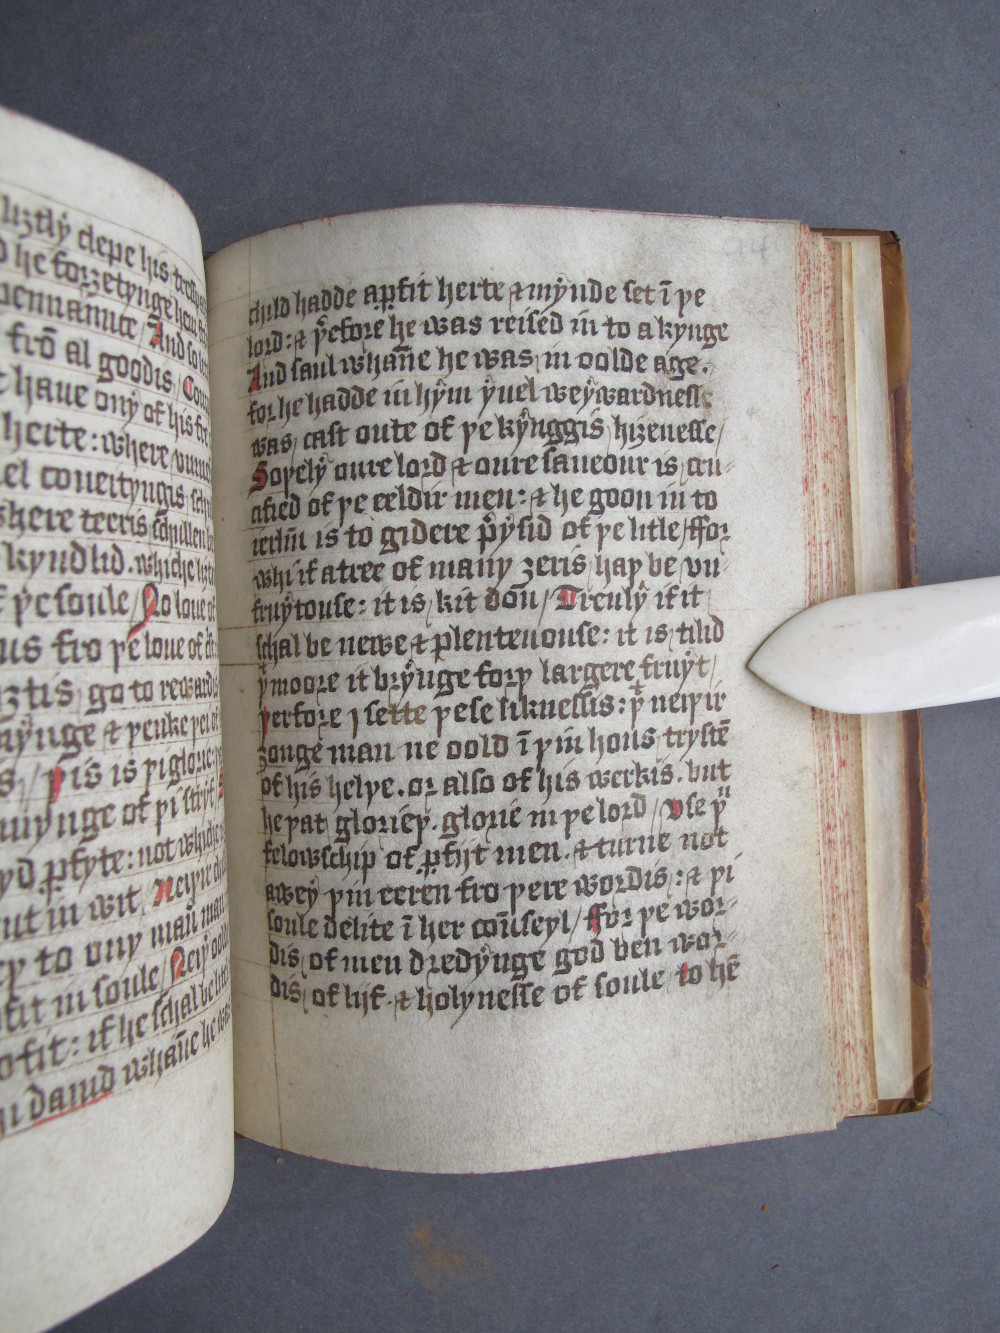 liztly clepe his
he forzetynge hem
pennaunce / And so
fro al goodis / Cou
haue ony of his fre
herte : where
el coueityngis
where teeris schullen
kyndlid . whiche
þe soule / No loue of
us fro þe loue of
ztis go to rewardis
nynge & þenke þei
is // Þis is þi glorie
nuynge of þi
yd ꝑfyte : not whiche
but in wit / Neiþir
to ony man
ꝑfit in soule / Neiþ oold
fit : if he schal be
dauid whan̄e he was
94
child hadde a ꝑfit herte & mynde set ī þe
lord : & þͤfore he was reised in to a kynge
And saul whan̄e he was in oolde age .
for he hadde in hym yuel weywardnesse
was / cast oute of þe kynggis hizenesse /
Soþely oure lord & oure saueour is cru-
cified of þe eeldir men : & he goon in to
ierlm̄ is to gidere preysid of þe litle / ffor
whi if a tree of many zeris / haþ be vn-
fruytouse : it is / kit doū / Treuly if it
schal be newe & plenteuouse : it is tilid
þͭ moore it brynge forþ largere fruyt /
Þerfore j sette þese liknessis : þͭ neiþir
zonge man ne oold ī þin hous tryste̅
of his helþe . or also of his werkis . but
he þat glorieþ . glorie in þe lord / Vse þͧ
felowschip of ꝑfijt men . & turne not
awey þin eeren fro þere wordis : & þi
soule delite ī her coūseyl / ffor þe wor-
dis / of men dredynge god ben wor-
dis / of lijf . & holynesse of soule / to hē